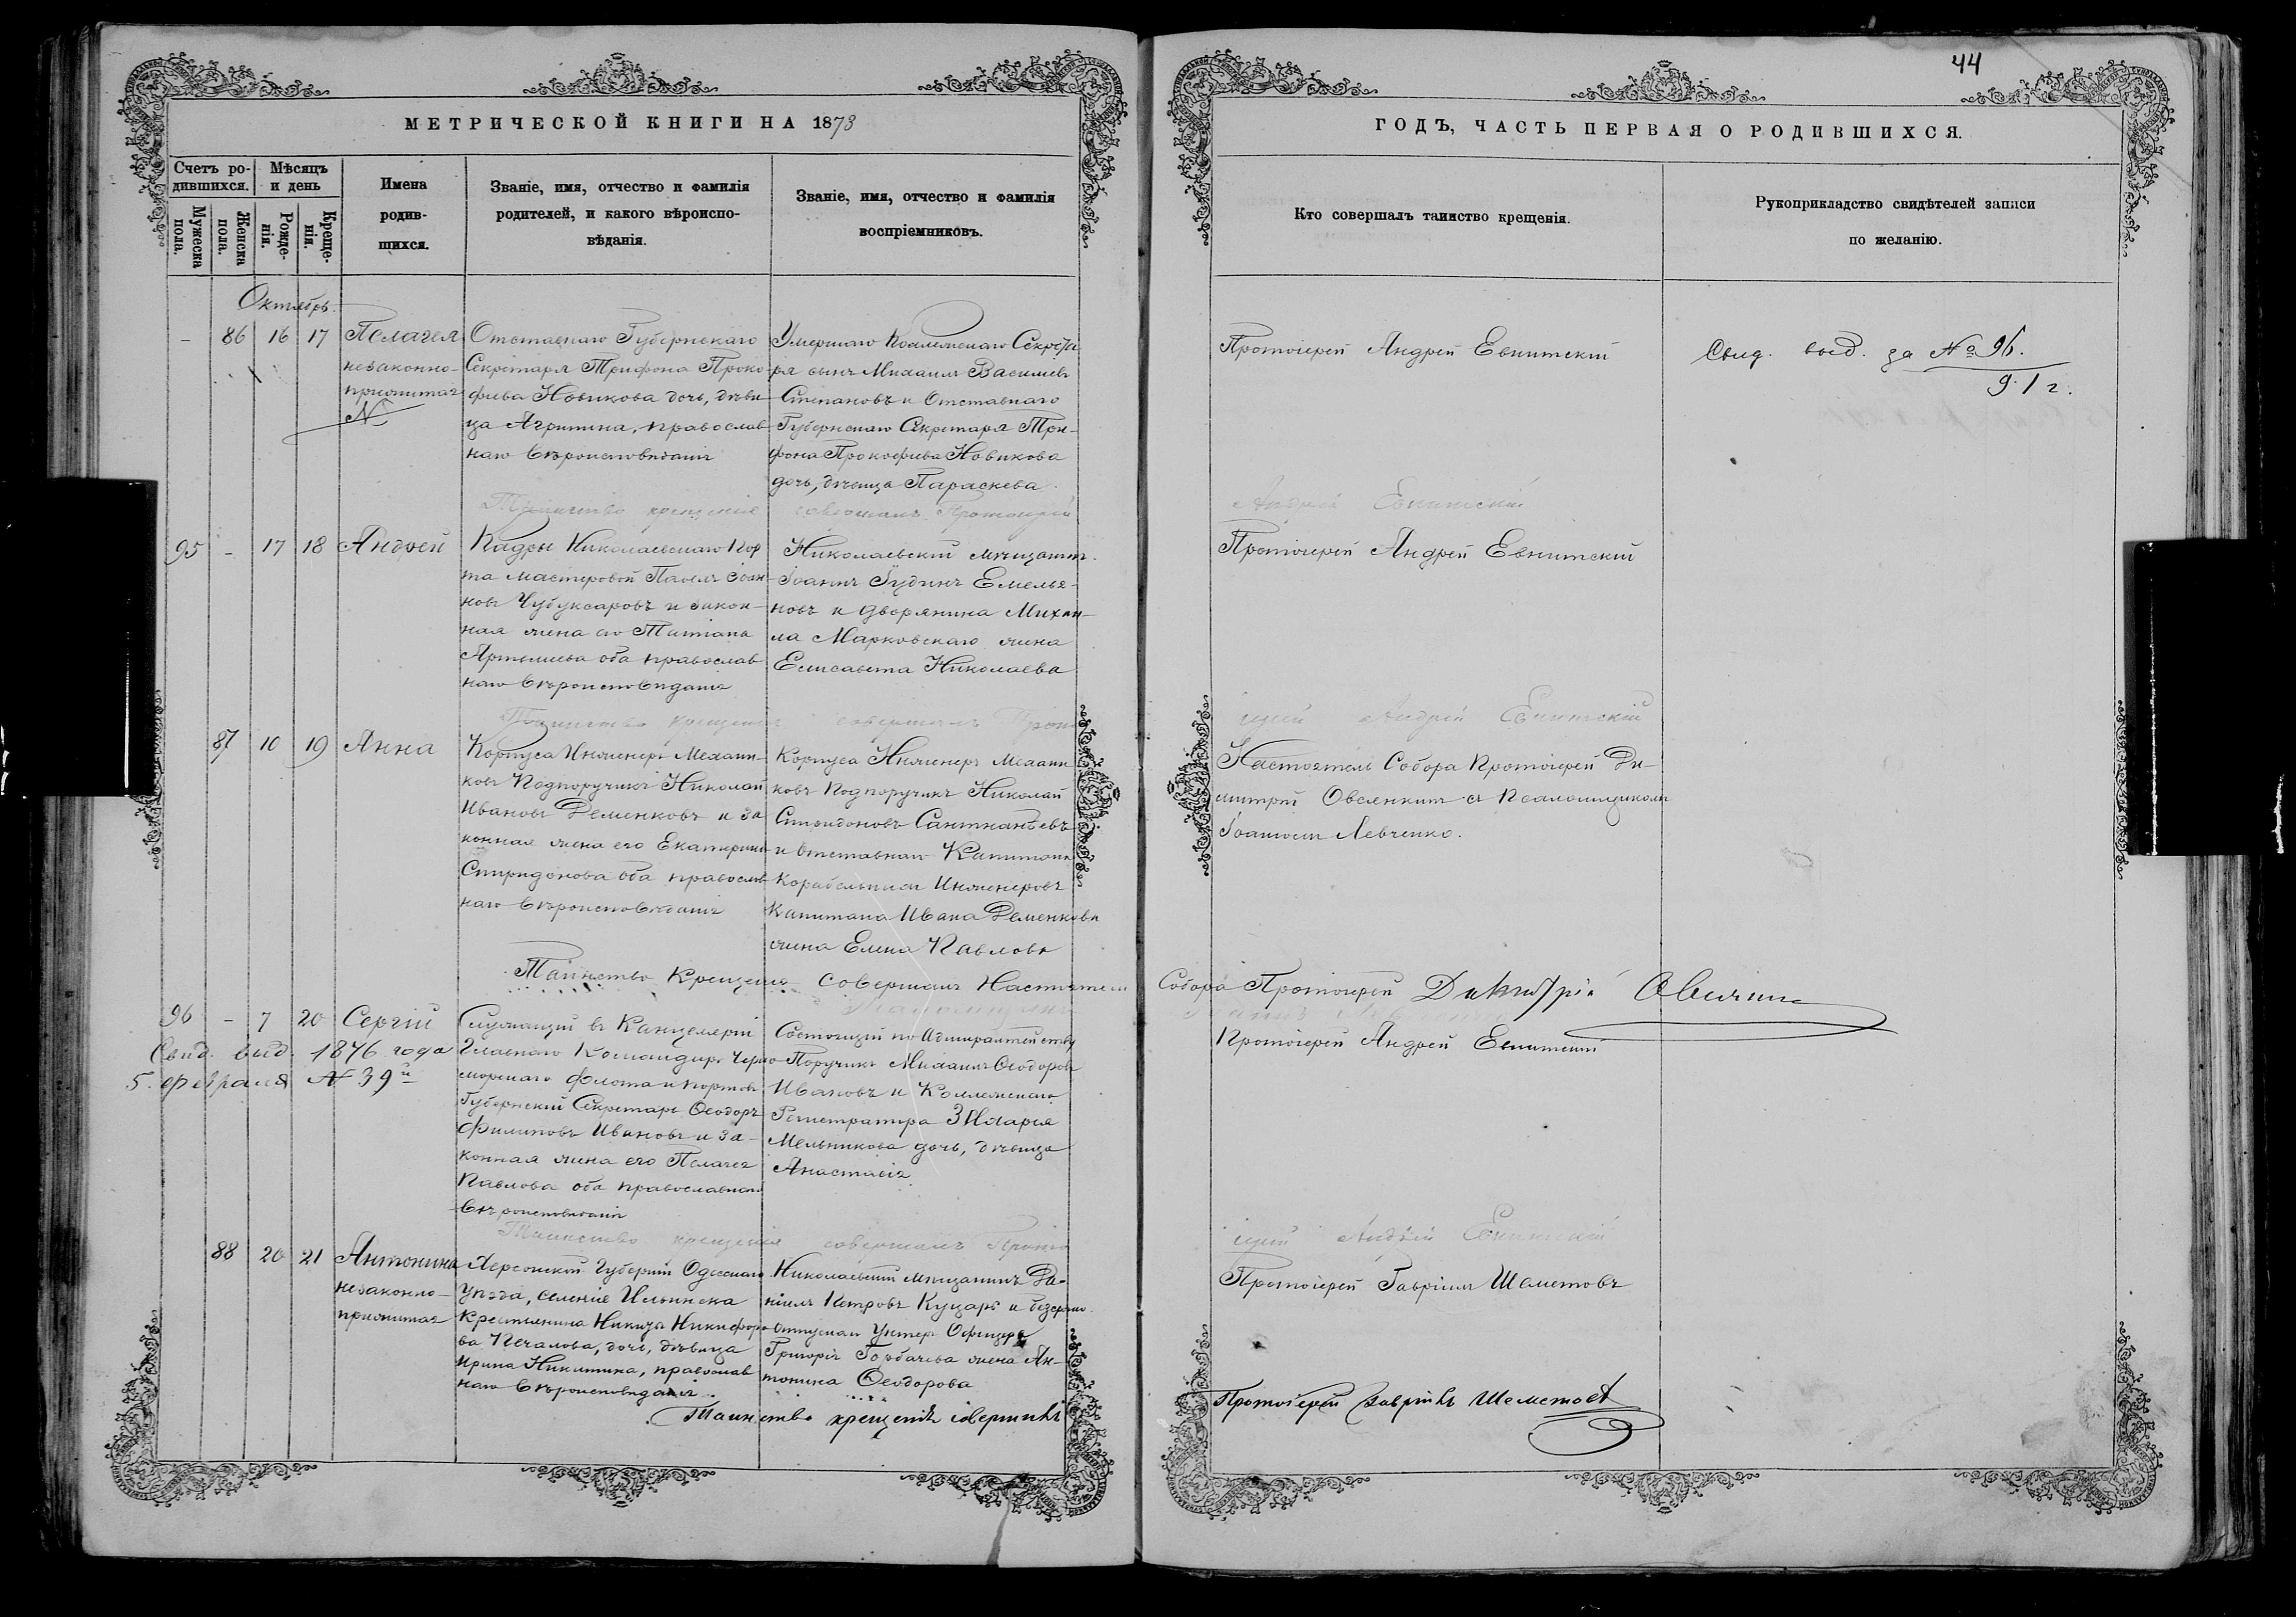 44
МЕТРИЧЕСКОЙ КНИГИ НА 1873
ГОДЪ, ЧАСТЬ ПЕРВАЯ О РОДИВШИХСЯ.
Счетъ ро-
дившихся.
Мѣсяцъ
и день
Мужеска
пола.
Женска
пола.
Рожде-
нія.
Креще-
нія.
Имена
родив-
шихся.
Званіе, имя, отчество и фамилія
родителей, и какого вѣроиспо-
вѣданія.
Званіе, имя, отчество и фамилія
воспріемниковъ.
Кто совершалъ таинство крещенія.
Рукоприкладство свидѣтелей записи
по желанію.
Октябрь
- 86 16 17
Пелагея
незаконно-
прижитая
N
Отставнаго Губернскаго
Секретаря Трифона Проко-
фьева Новикова дочь, дѣви-
ца Агрипина, православ-
наго вѣроисповѣданія
Умершаго Коллежскаго Секрета-
ря сынъ Михаилъ Васильевъ
Степановъ и Отставнаго
Губернскаго Секретаря Три-
фона Прокофьева Новикова
дочь, дѣвица Параскева.
Протоіерей Андрей Евнитскій
Свид. выд. за № 96.
91 г.
Таинство крещенія совершалъ Протоіерей
Андрей Евнитскій
95 - 17 18
Андрей
Кадры Николаевскаго Пор-
та мастеровой Павелъ Іоан-
новъ Чубуксаровъ и закон-
ная жена его Татіана
Артемьева оба православ-
наго вѣроисповѣданія
Николаевскій мѣщанинъ
Іоаннъ Іудинъ Емелья-
новъ и дворянина Михаи-
ла Марковскаго жена
Елисавета Николаева
Протоіерей Андрей Евнитскій
Таинство крещенія совершалъ Прото
іерей Андрей Евнитскій
87 10 19
Анна
Корпуса Инженеръ Механи-
ковъ Подпоручикъ Николай
Ивановъ Деменковъ и за-
конная жена его Екатерина
Спиридонова оба православ-
наго вѣроисповѣданія
Корпуса Инженеръ Механи
ковъ Подпоручикъ Николай
Спиридоновъ
и отставнаго Капитана
Корабельныхъ Инженеровъ
Капитана Ивана Деменкова
жена Елена Павлова
Настоятель Собора Протоіерей Ди-
митрій съ Псаломщикомъ
Іоанномъ Левченко.
Таинство Крещенія совершалъ Настоятель
Собора Протоіерей Димитрій
96 - 7 20
Сергій
Свид. выд. 1876 года
5 февраля № 39й
Служащій въ Канцеляріи
Главнаго Командира Черно-
морскаго флота и портовъ
Губернскій Секретарь Ѳеодоръ
Филиповъ Ивановъ и за-
конная жена его Пелагея
Павлова оба православнаго
вѣроисповѣданія
Состоящій по Адмиралтейству
Поручикъ Михаилъ Ѳеодоровъ
Ивановъ и Коллежскаго
Регистратора
Мельникова дочь, дѣвица
Анастасія
Протоіерей Андрей Евнитскій
Таинство крещенія совершалъ Прото
іерей Андрей Евнитскій
88 20 21
Антонина
незаконно-
прижитая
Херсонской Губерніи Одесскаго
Уѣзда, селенія Ильинска
крестьянина Никиты Никифоро-
ва Печалова, дочь, дѣвица
Ирина Никитина, православ
наго вѣроисповѣданія
Николаевскій мѣщанинъ Да-
ніилъ Петровъ Куцарь и безсрочно-
отпускнаго Унтеръ Офицера
Григорія Горбачева жена Ан-
тонина Ѳеодорова
Протоіерей Гавріилъ Шаметовъ
Таинство крещенія совершилъ
Протоіерей Гавріилъ Шаметовъ